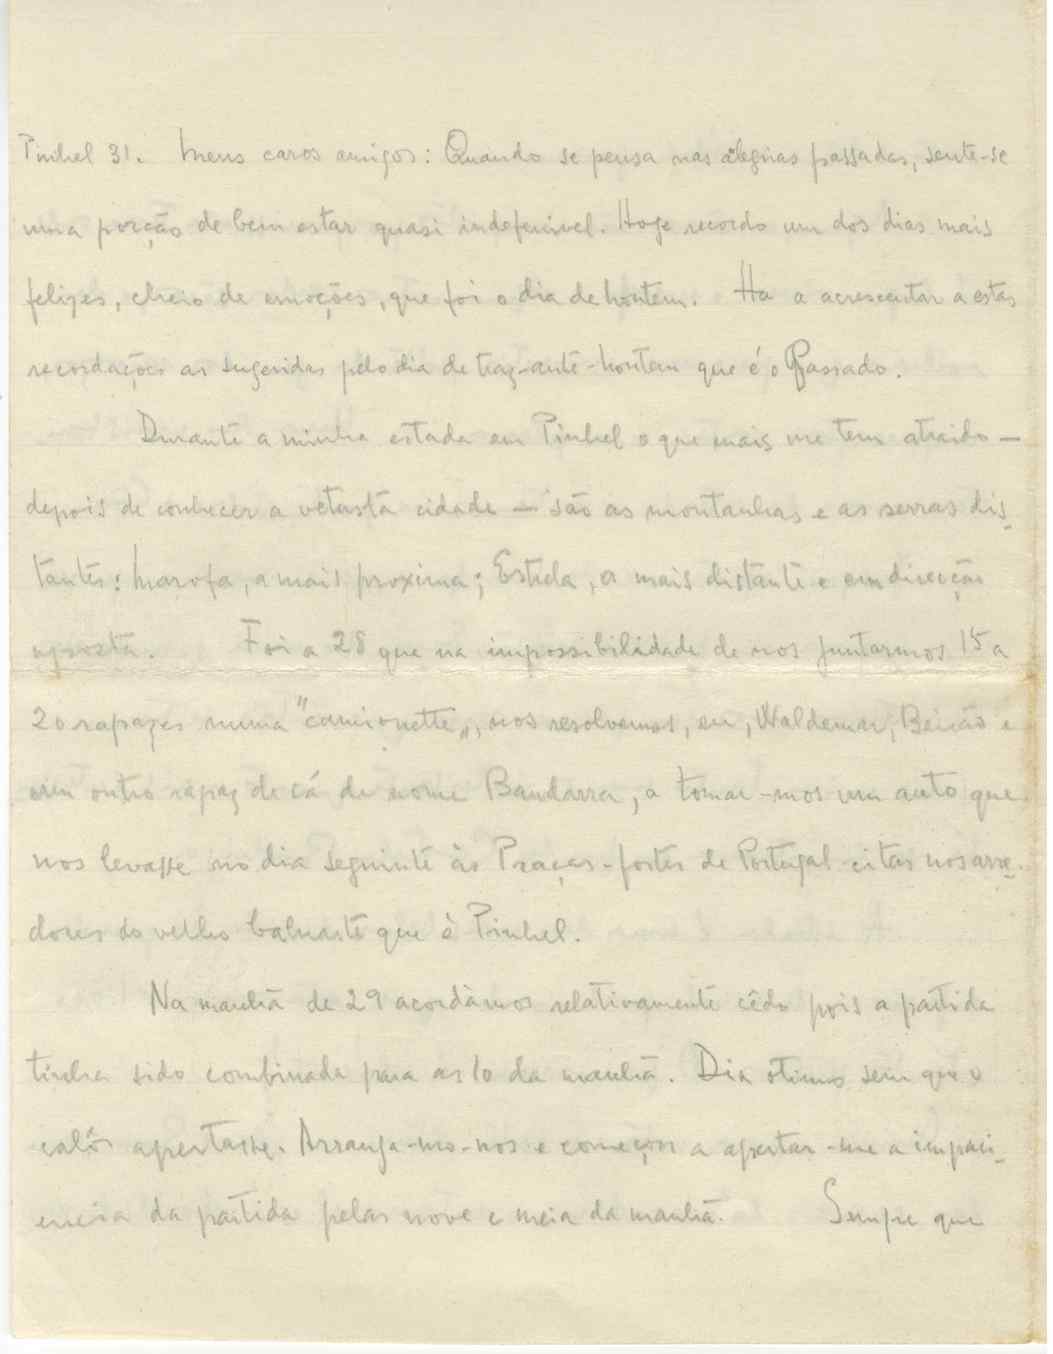 Pinhel 31. Meus caros amigos: Quando se pensa nas alegrias passadas, sente-se
uma porção de bem estar quasi indefenivel. Hoje recordo um dos dias mais
felizes, cheio de emoções, que foi o dia de hontem. Ha a acrescentar a estas
recordações as sugeridas pelo dia de traz-ante-hontem que é o Passado.
Durante a minha estada em Pinhel o que mais me tem atraido —
depois de conhecer a vetusta cidade — são as montanhas e as serras dis-
tantes: Marofa, a mais proxima; Estrela, a mais distante e em direcção
oposta. Foi a 28 que na impossibilidade de nos juntarmos 15 a
20 rapazes numa "camionette", nos resolvemos, eu, Waldemar, Beirão e
um outro rapaz de cá de nome Bandarra, a tomar-mos um auto que
nos levasse no dia seguinte às Praças-fortes de Portugal citas nos arre-
dores do velho baluarte que è Pinhel.
Na manhã de 29 acordàmos relativamente cêdo pois a partida
tinha sido combinada para as 10 da manhã. Dia otimo sem que o
calôr apertasse. Arranja-mo-nos e começou a apertar-me a impaci-
encia da partida pelas nove e meia da manhã. Sempre que